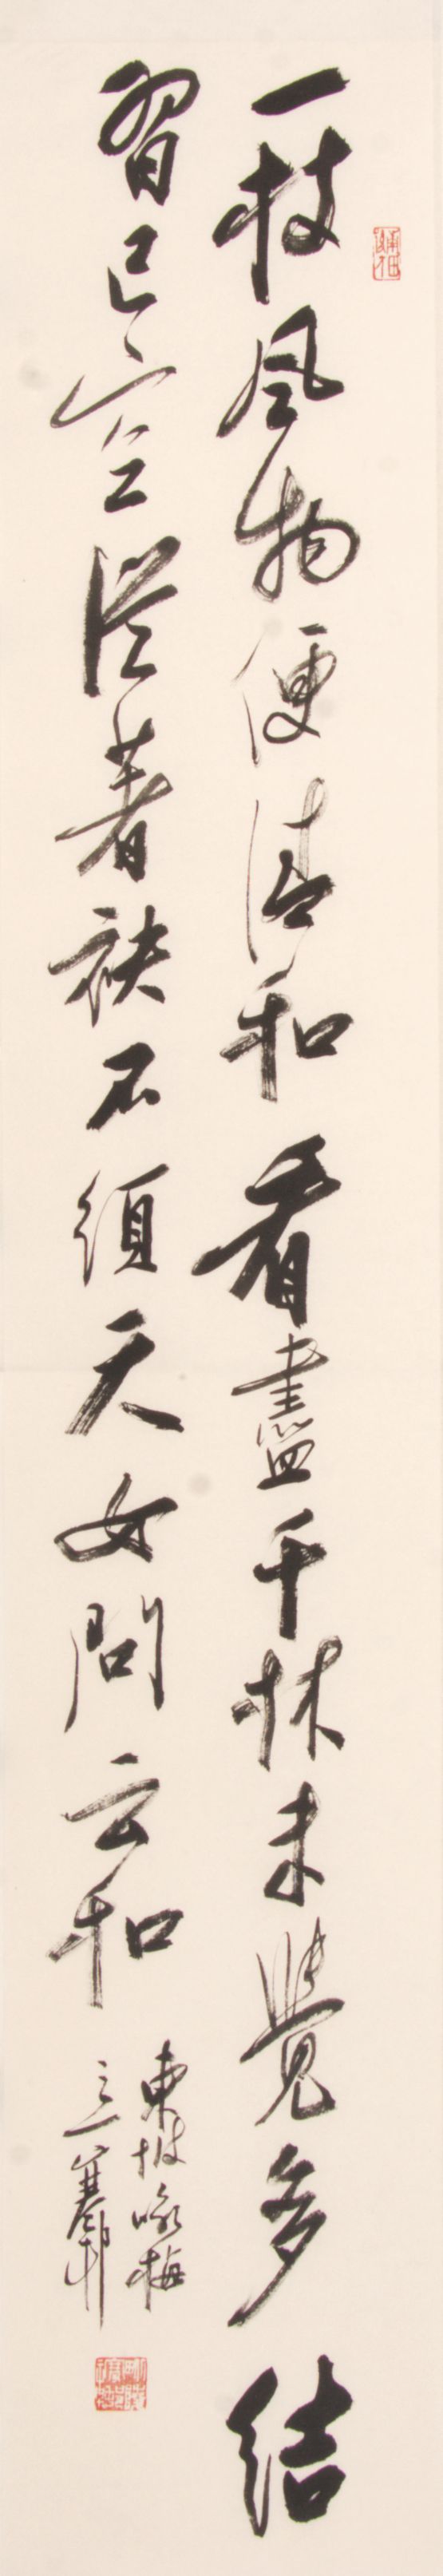 一枝風物便清和看盡千林未覺多結
習已空從著袂不須天女問云和
東坡咏梅
之一